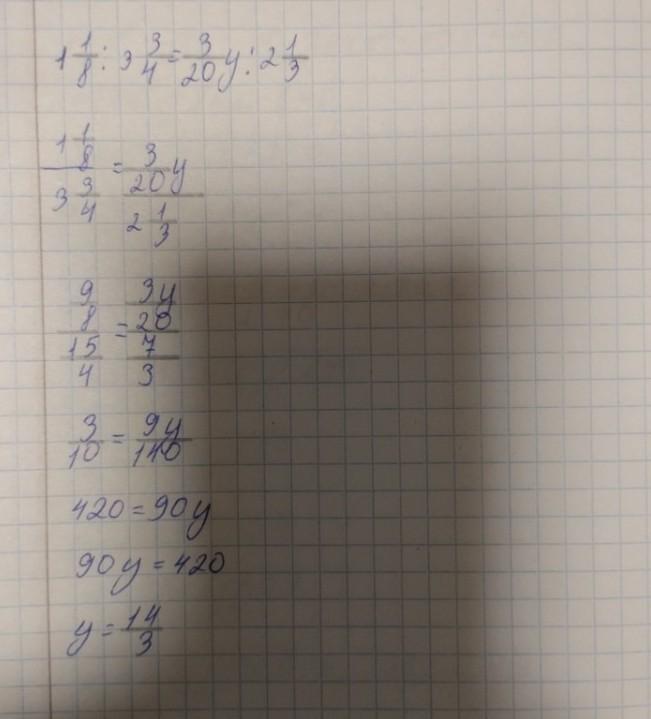 1 1/8 : 3 3/4 = 3/20 y : 2 1/3
(1 1/8)/(3 3/4) = (3/20 y)/(2 1/3)
(9/8)/(15/4) = (3y/20)/(7/3)
3/10 = 9y/140
420 = 90y
90y = 420
y = 14/3